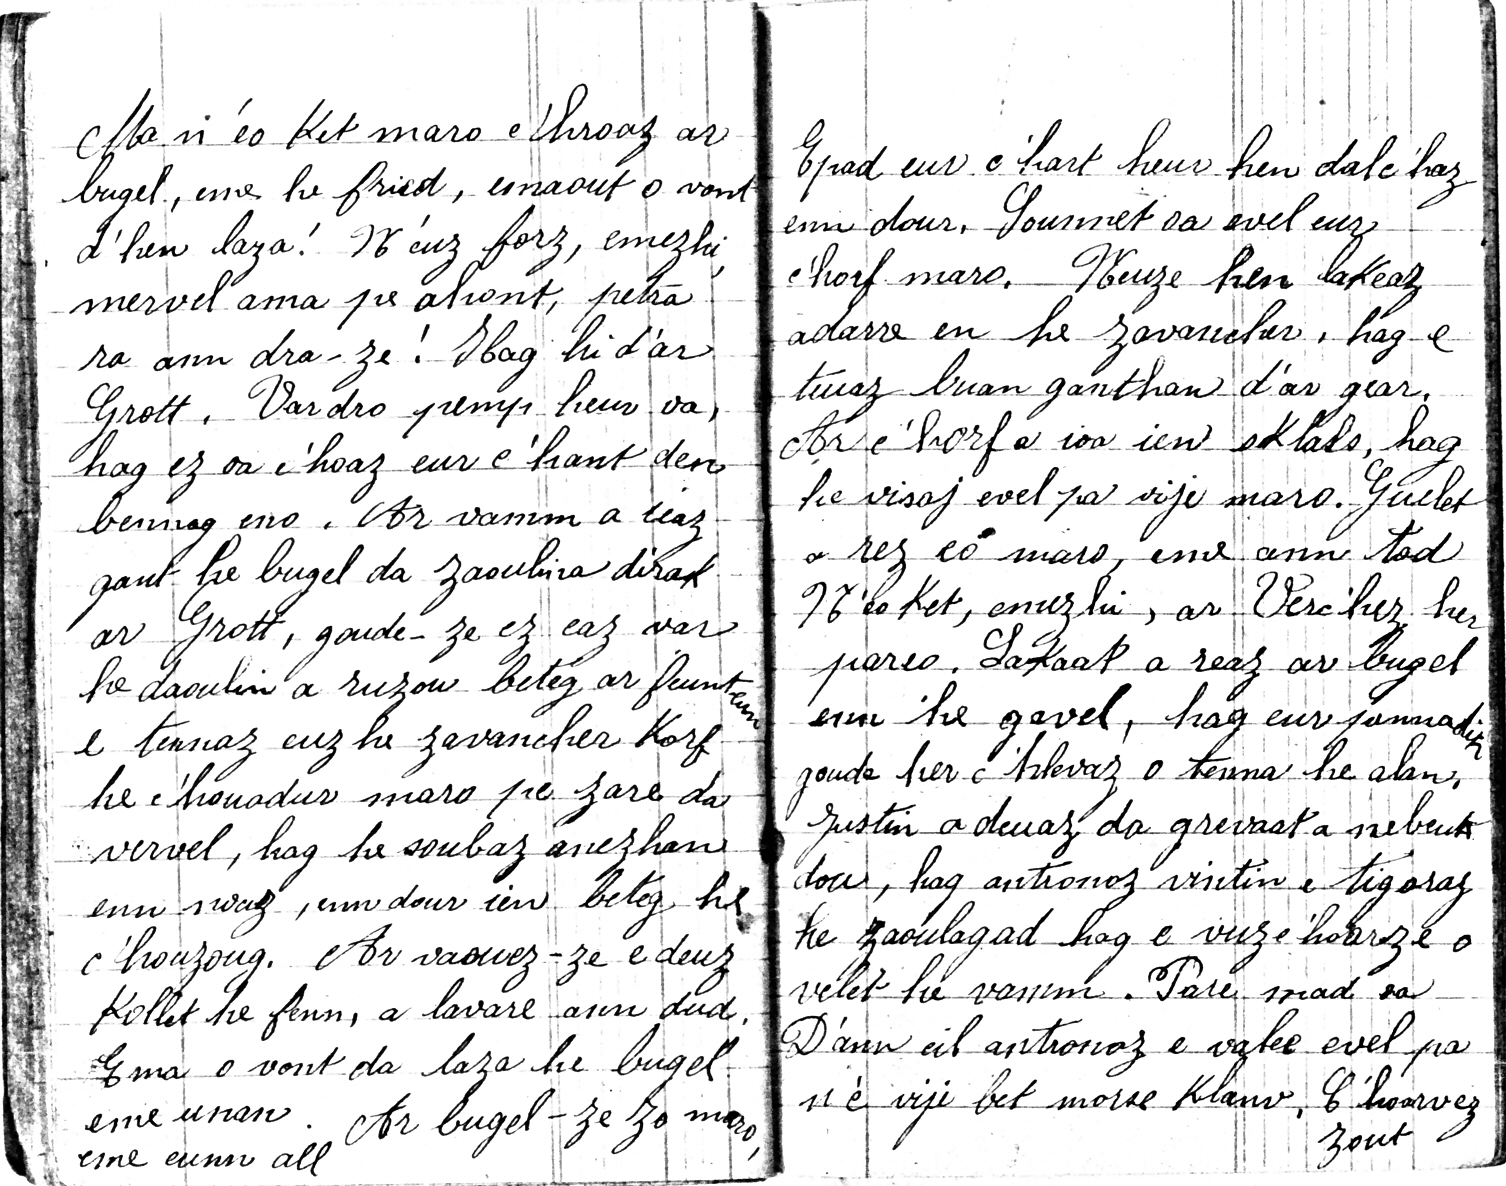 Ma n'éo Ket maro c'hroaz ar
bugel, eme he fried, emaout o vont
d'hen laza! N'euz forz, emezhi,
mervel ama pe ahont, petra
ra ann dra-ze! Hag hi d'ar
Grott. Vardro pemp heur oa,
hag ez oa c'hoaz eur c'hant den
bennag eno. Ar vamm a ieaz
gant he bugel da zaoulina dirak
ar Grott, goude-ze ez eaz var
he daoulin a ruzou beteg ar feunteun
e tennaz euz he zavancher Korf
he c'houadur maro pe zare da
vervel, hag he soubaz anezhan
enn noaz, enn dour ien beteg he
c'houzoug. Ar vaouez-ze e deuz
Kollet he fenn, a lavare ann dud.
Ema o vont da laza he bugel
eme unan. Ar bugel-ze zo maro,
eme eunn all
Epad eur c'hart heur hen dalc'haz
enn dour. Sounnet oa evel eur
c'horf maro. Neuze hen lakeaz
adarre en he zavancher, hag e
teuaz buan ganthan d'ar gear.
Ar c'horf a ioa ien sklaso, hag
he visaj evel pa vije maro. Guelet
a rez eo maro, eme ann tad
N'éo Ket, emezhi, ar Verc'hez her
pareo. Lakaat a reaz ar bugel
enn he gavel, hag eur pennadik
goude her c'hlevaz o tenna he alan,
Justin a deuaz da grevaat a nebeut
dou, hag antronoz vintin e tigoraz
he zaoulagad hag e vuze c'hoarze o
velet he vamm. Pare mad oa
D'ann eil antronoz e valee evel pa
n'é vije bet morse Klanv. C'hoarvez
zout